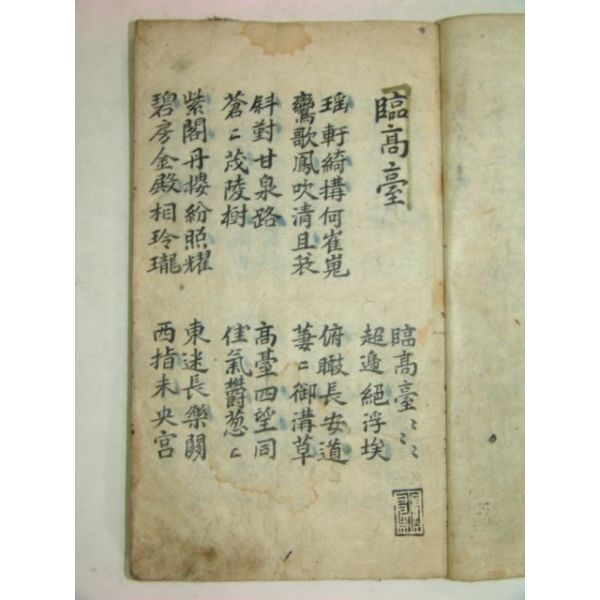 臨高臺
臨高臺〻〻
超遞絕浮埃
瑶軒綺搆何崔嵬
鸞歌鳳吹清且哀
俯瞰長安道
萋〻御溝草
斜對甘泉路
蒼〻茂陵樹
高臺四望同
佳氣鬱葱〻
紫閣丹樓紛照耀
碧房金殿相玲瓏
東迷長樂闕
西指未央宮